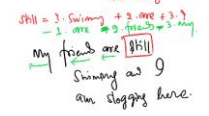 still = 1. Swimmy + 2. are + 3. I
- 1. are - 2. friends - 3. my
My friends are still
Swimmy and I
are slogging here.